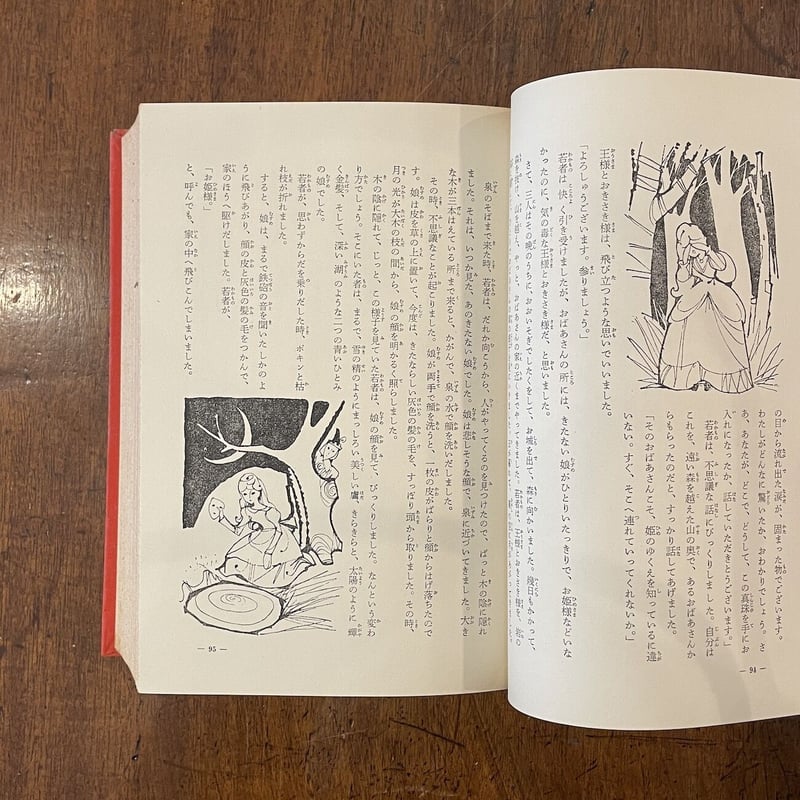 の目から流れ出た涙が、固まった物でございます。
わたしがどんなに驚いたか、おわかりでしょう。さ
あ、あなたが、どこで、どうして、この真珠を手にお
入れになったか、話していただきとうございます。」
若者は、不思議な話にびっくりしました。自分は
これを、遠い森を越えた山の奥で、あるおばあさんか
らもらったのだと、すっかり話してあげました。
「そのおばあさんこそ、姫のゆくえを知っているに違
いない。すぐ、そこへ連れていってくれないか。」
王様とおきさき様は、飛び立つような思いでいいました。
「よろしゅうございます。参りましょう。」
若者は、快く引き受けましたが、おばあさんの所には、きたない娘がひとりいたっきりで、お姫様などいな
かったのに、気の毒な王様とおきさき様だ、と思いました。
さて、三人はその晩のうちに、おおいそぎでしたくをして、お城を出て、森に向かいました。幾日もかかって、
山を越え、やっと、おばあさんの家の近くまでやってきました。若者は、王様とおきさき様を、
— 94 —
泉のそばまで来た時、若者は、だれか向こうから、人がやってくるのを見つけたので、ぱっと木の陰に隠れ
ました。それは、いつか見た、あのきたない娘でした。娘は悲しそうな顔で、泉に近づいてきました。大き
な木が三本はえている所まで来ると、かがんで、泉の水で顔を洗いだしました。
その時、不思議なことが起こりました。娘が両手で顔を洗うと、一枚の皮がぱらりと顔からはげ落ちたので
す。娘は皮を草の上に置いて、今度は、きたならしい灰色の髪の毛を、すっぽり頭から取りました。その時、
月の光が大木の枝の間から、娘の顔を明かるく照らしました。
木の陰に隠れて、じっと、この様子を見ていた若者は、娘の顔を見て、びっくりしました。なんという変わ
り方でしょう。そこにいた者は、まるで、雪の精のようにまっしろい美しい膚、きらきらと、太陽のように輝
く金髪、そして、深い湖のような二つの青いひとみ
の娘でした。
若者が、思わずからだを乗りだした時、ポキンと枯
れ枝が折れました。
すると、娘は、まるで鉄砲の音を聞いたしかのよ
うに飛びあがり、顔の皮と灰色の髪の毛をつかんで、
家のほうへ駆けだしました。若者が、
「お姫様。」
と、呼んでも、家の中へ飛びこんでしまいました。
— 95 —